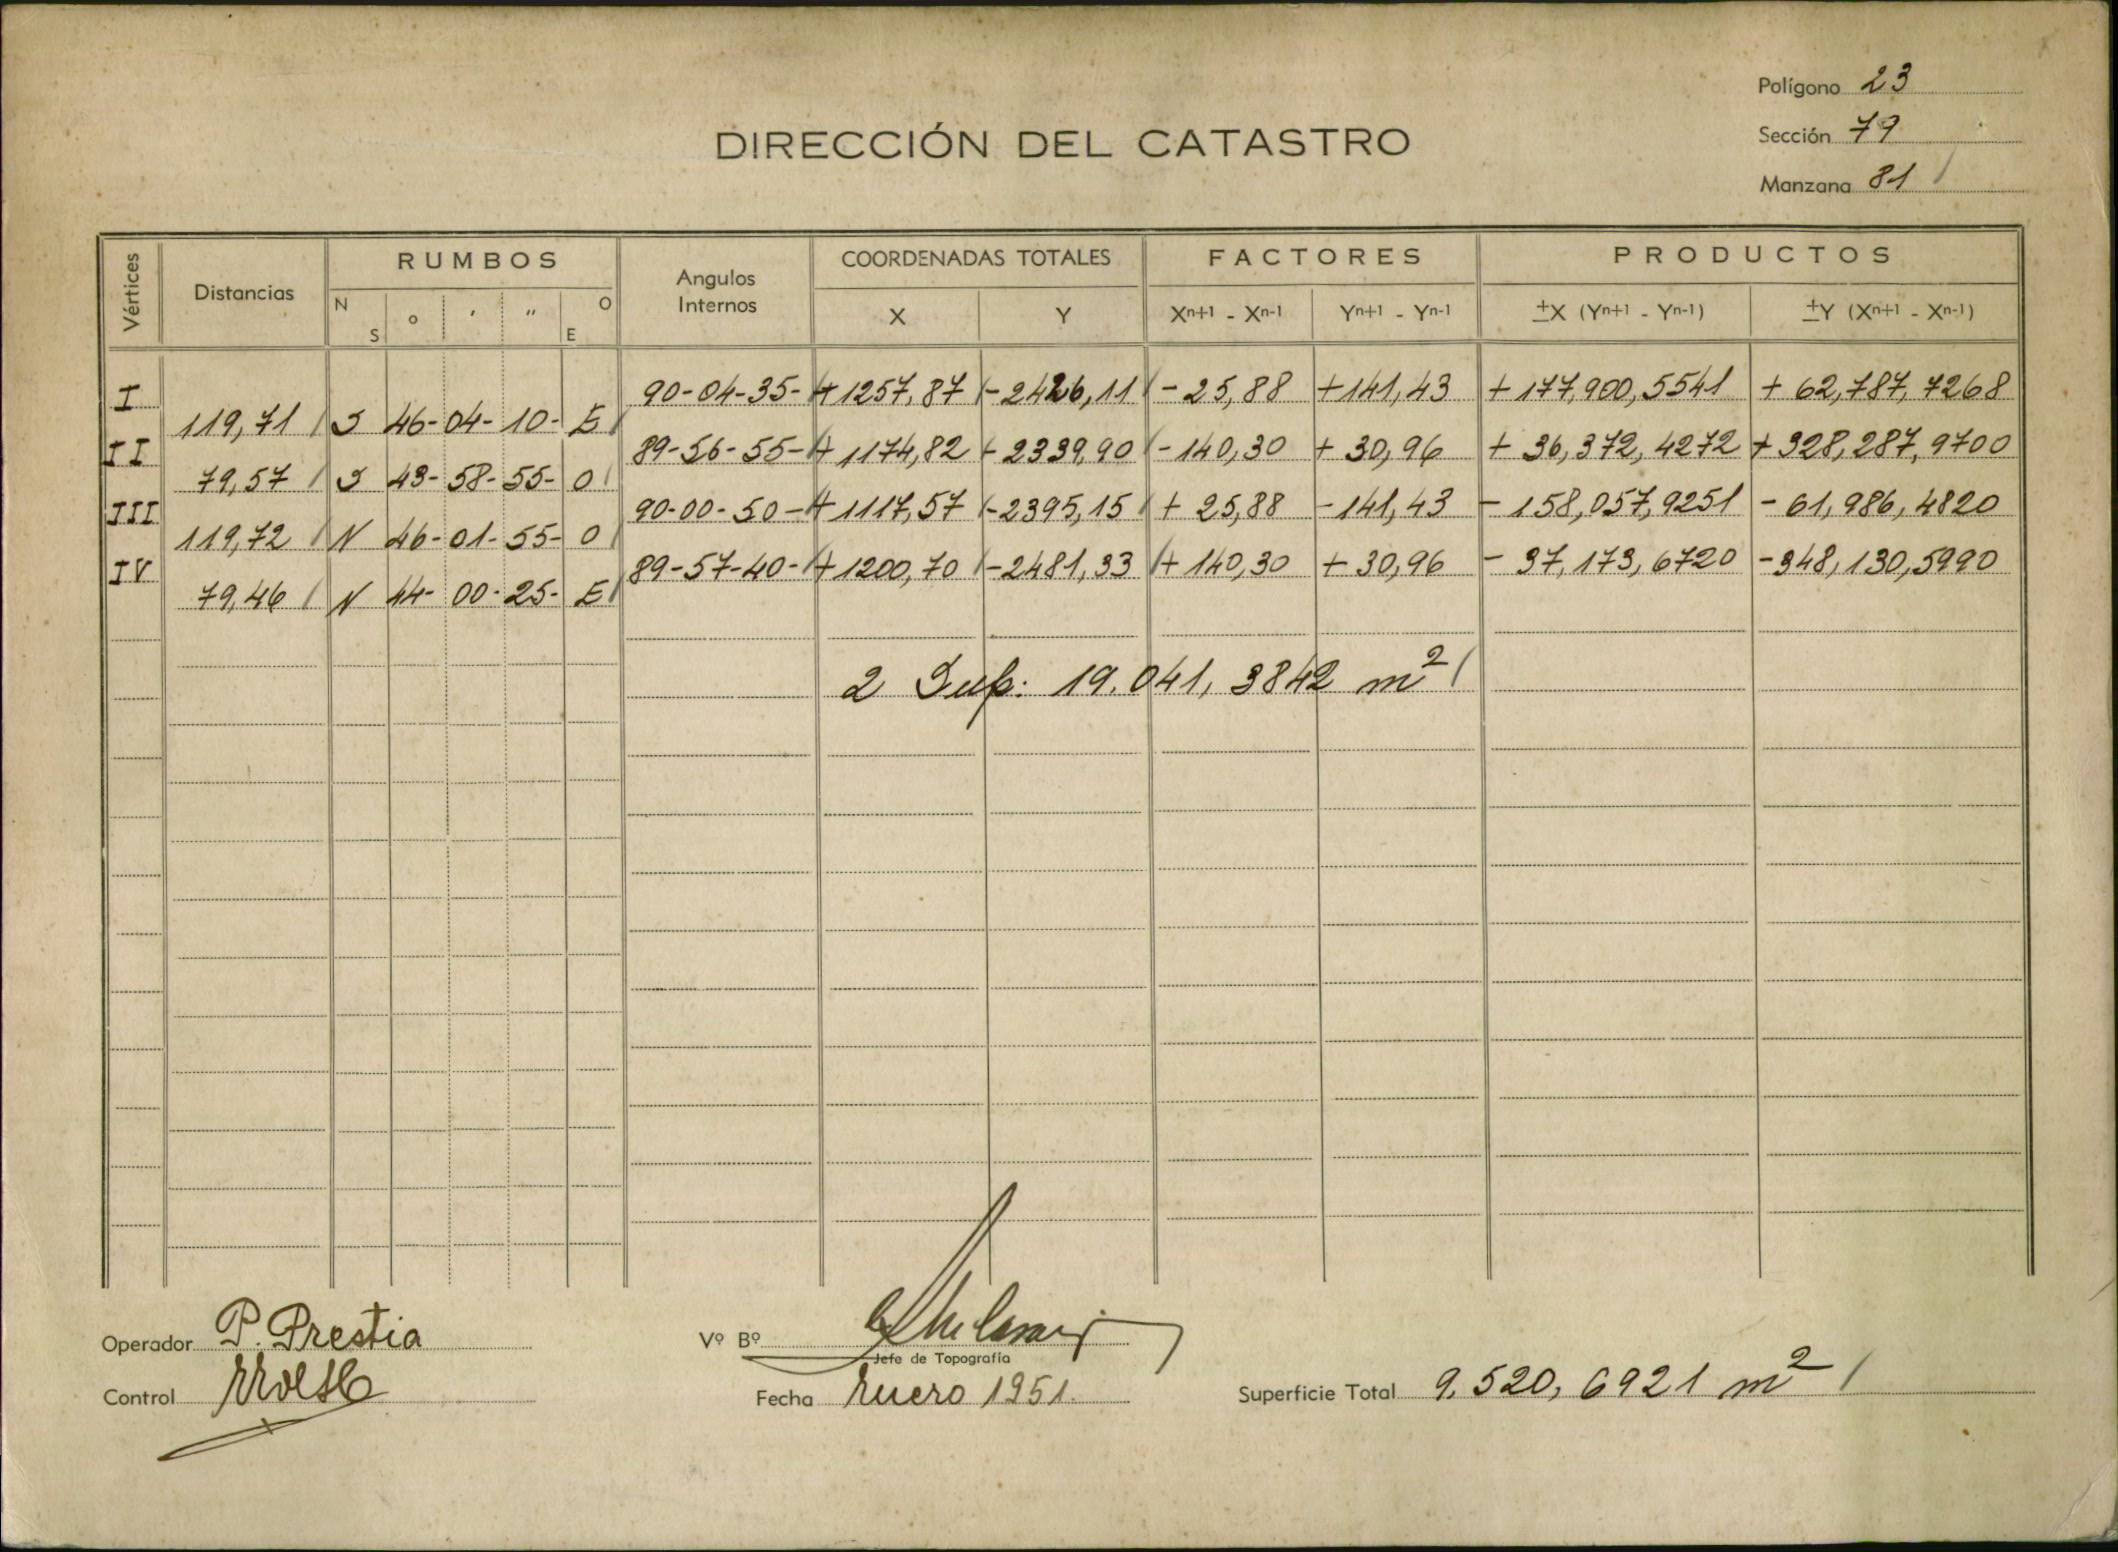 Polígono 23
DIRECCIÓN DEL CATASTRO
Sección 79
Manzana 81 /
Vértices Distancias RUMBOS Angulos Internos COORDENADAS TOTALES FACTORES PRODUCTOS
N S o ' " O E X Y Xn+1 - Xn-1 Yn+1 - Yn-1 ±X (Yn+1 - Yn-1) ±Y (Xn+1 - Xn-1)
I 90-04-35- + 1257,87 /-2426,11 / - 25,88 +141,43 + 177,900,5541 + 62,787,7268
119,71 / S 46-04-10- E /
II 89-56-55- + 1174,82 - 2339,90 / - 140,30 + 30,96 + 36,372,4272 + 328,287,9700
79,57 / S 43-58-55- O /
III 90-00-50- + 1117,57 /-2395,15 / + 25,88 -141,43 - 158,057,9251 - 61,986,4820
119,72 / N 46-01-55- O /
IV 89-57-40- + 1200,70 /-2481,33 / + 140,30 + 30,96 - 37,173,6720 -348,130,5990
79,46 / N 44-00-25- E /
2 Sup: 19.041,3842 m² /
Operador P. Prestia
Vº Bº
Jefe de Topografía
Control
Fecha Enero 1951.
Superficie Total 9.520,6921 m² /